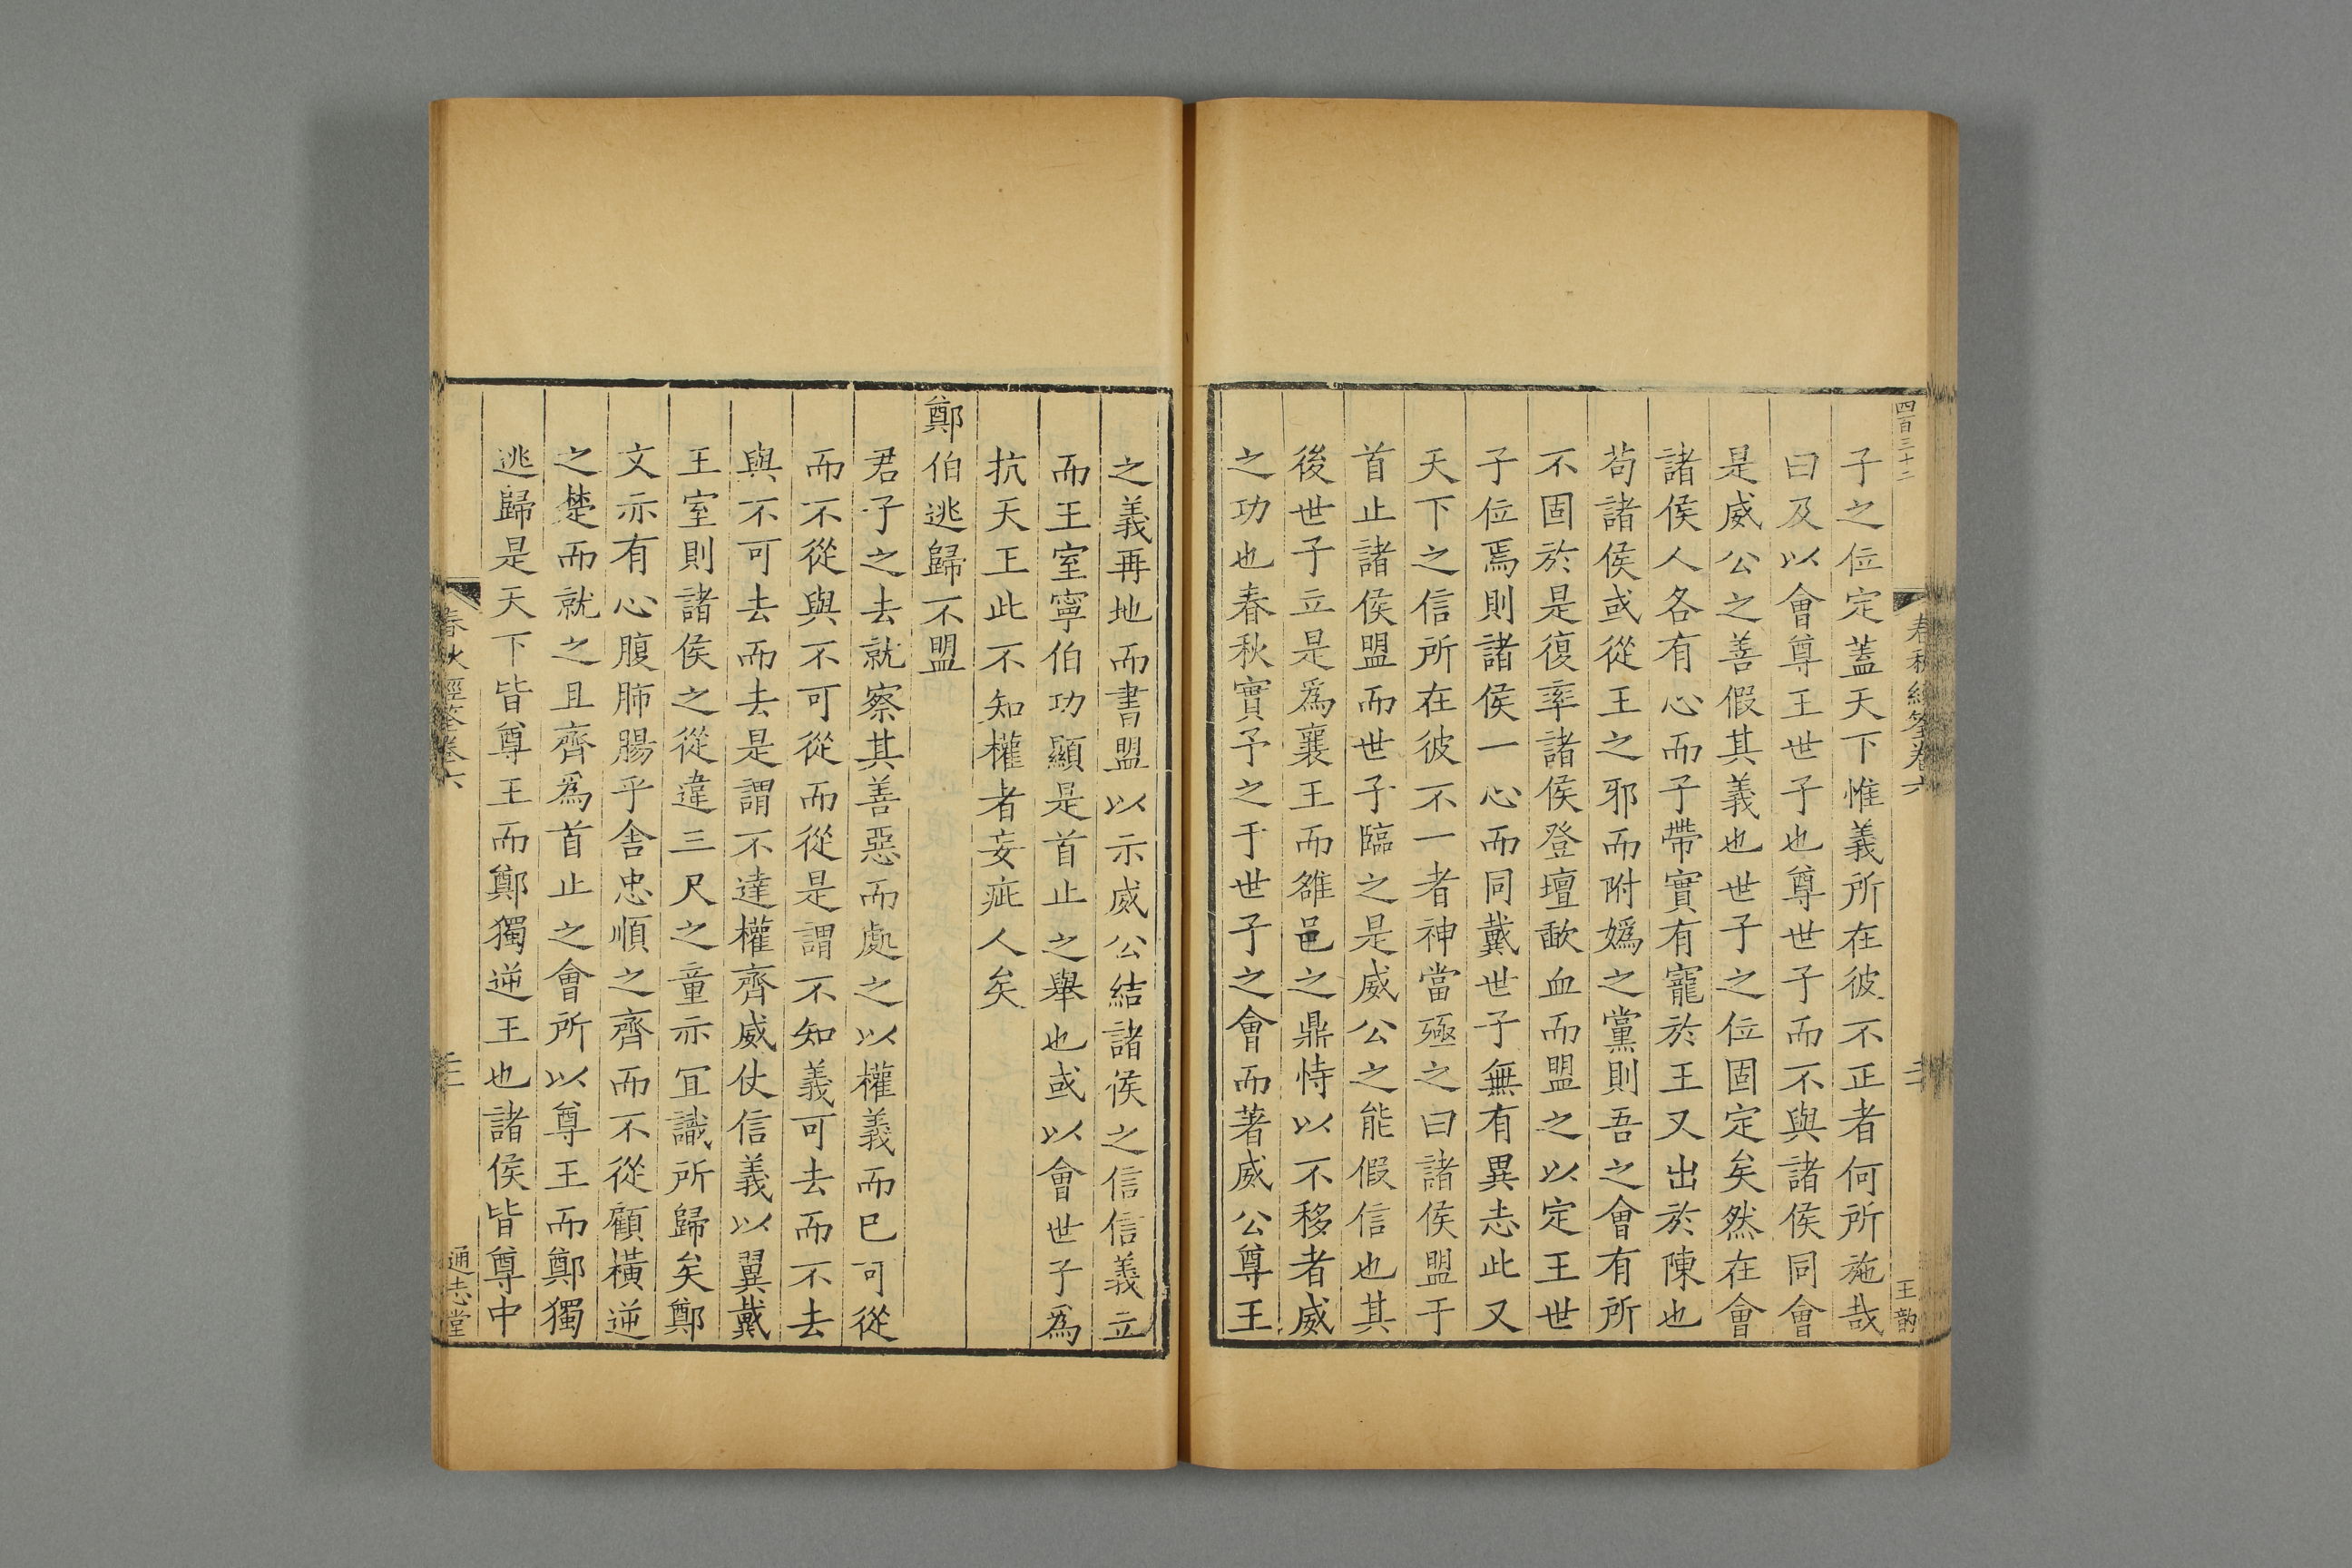 四百三十二
春秋經筌卷六
王
子之位定蓋天下惟義所在彼不正者何所施哉
曰及以會尊王世子也尊世子而不與諸侯同會
是威公之善假其義也世子之位固定矣然在會
諸侯人各有心而子帶實有寵於王又出於陳也
茍諸侯或從王之邪而附嬀之黨則吾之會有所
不固於是復率諸侯登壇歃血而盟之以定王世
子位焉則諸侯一心而同戴世子無有異志此又
天下之信所在彼不一者神當殛之曰諸侯盟于
首止諸侯盟而世子臨之是威公之能假信也其
後世子立是爲襄王而雒邑之鼎恃以不移者威
之功也春秋實予之于世子之會而著威公尊王
之義再地而書盟以示威公結諸侯之信信義立
而王室寧伯功顯是首止之舉也或以會世子爲
抗天王此不知權者妄疵人矣
鄭伯逃歸不盟
君子之去就察其善惡而處之以權義而已可從
而不從與不可從而從是謂不知義可去而不去
與不可去而去是謂不達權齊威仗信義以翼戴
王室則諸侯之從違三尺之童亦冝識所歸矣鄭
文亦有心腹肺腸乎舍忠順之齊而不從顧橫逆
之楚而就之且齊爲首止之會所以尊王而鄭獨
逃歸是天下皆尊王而鄭獨逆王也諸侯皆尊中
春秋經筌卷六
通志堂